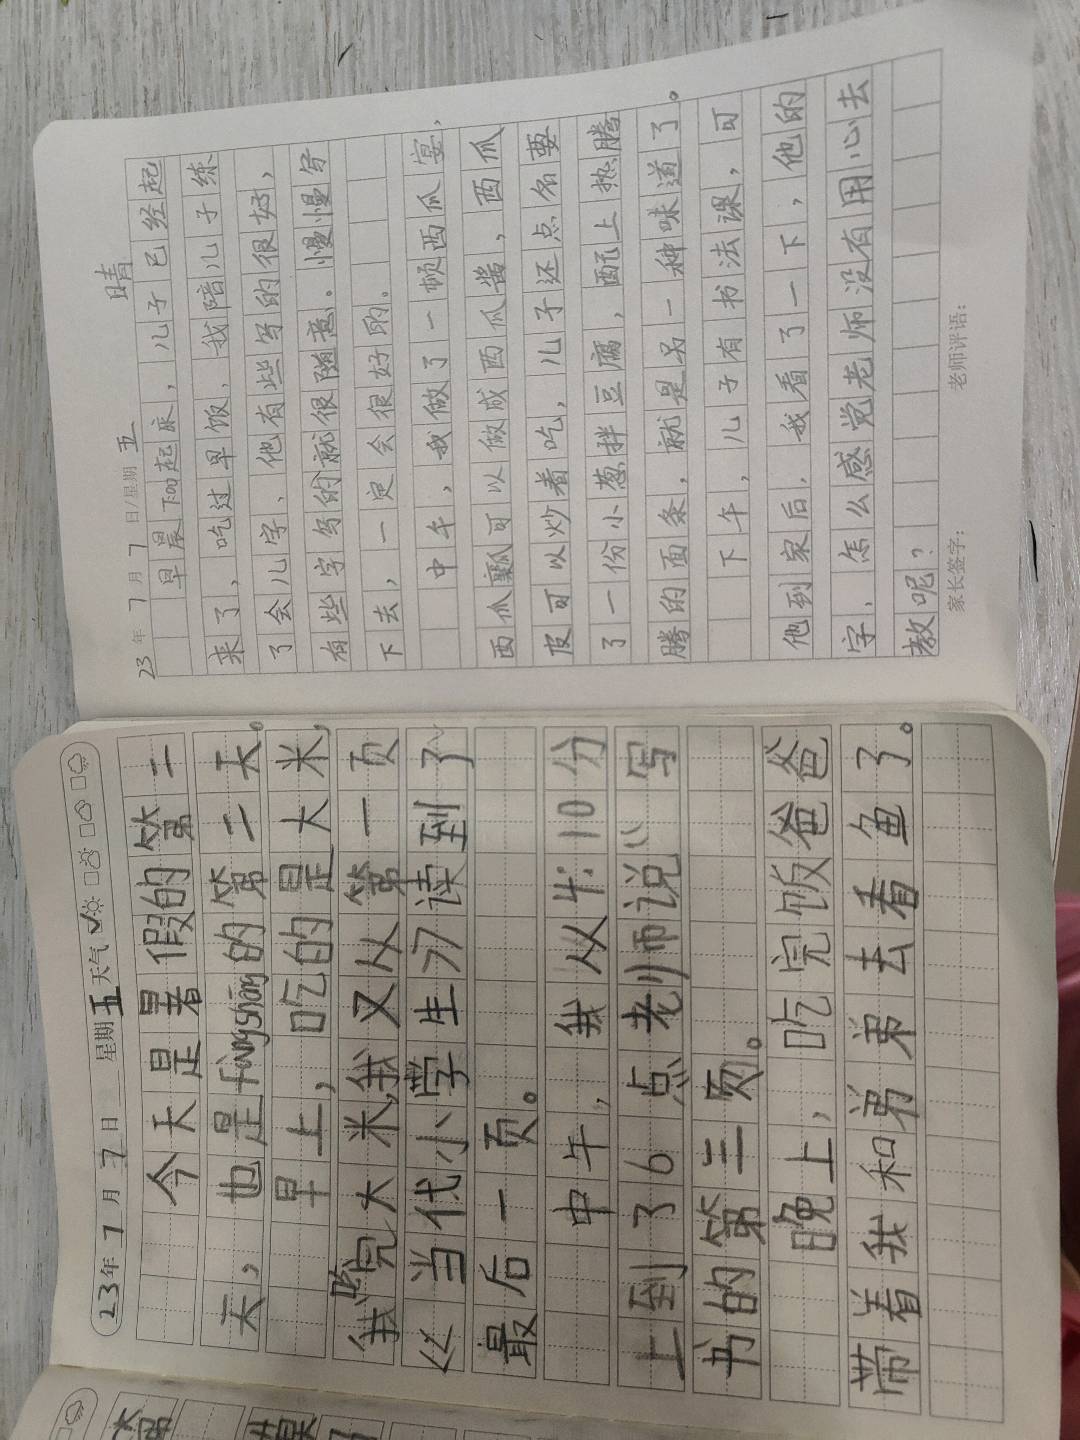 23年7月7日 星期五 天气
今天是暑假的第二
天，也是fàngshāng的第二天。
早上，吃的是大米，
我吃完大米，我又从第一页
《当代小学生》读到了
最后一页。
中午，我从4:10分
上到了6点老师说写
书的第三页。
晚上，吃完饭爸爸
带着我和弟弟去看鱼了。
23年7月7日/星期五 晴
早晨下面起床，儿子已经起
来了，吃过早饭，我陪儿子练
了会儿字，他有些写的很好，
有些字写的就很随意。慢慢写
下去，一定会很好的。
中午，我做了一顿西瓜宴，
西瓜瓤可以做成西瓜酱，西瓜
皮可以炒着吃，儿子还点名要
了一份小葱拌豆腐，配上热腾
腾的面条，就是另一种味道了。
下午，儿子有书法课，可
他到家后，我看了一下，他的
字，怎么感觉老师没有用心去
教呢？
家长签字： 老师评语：